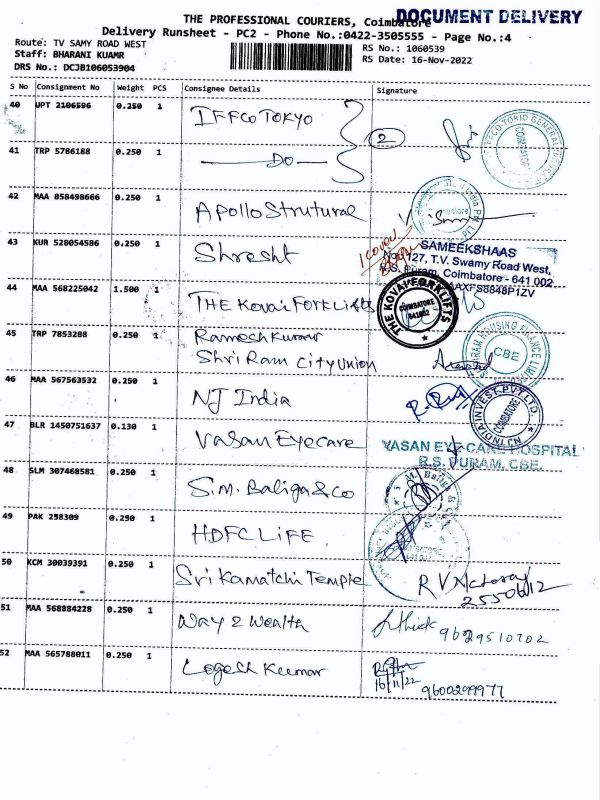 DOCUMENT DELIVERY
THE PROFESSIONAL COURIERS, Coimbatore
Delivery Runsheet - PC2 - Phone No.:0422-3505555 - Page No.:4
Route: TV SAMY ROAD WEST
RS No.: 1060539
Staff: BHARANI KUAMR
RS Date: 16-Nov-2022
DRS No.: DCJB106053904
S No Consignment No Weight PCS Consignee Details Signature
40 UPT 2106596 0.250 1 IFFCO TOKYO 2
41 TRP 5786188 0.250 1 — DO —
42 MAA 858498666 0.250 1 Apollo Strutural
43 KUR 528054586 0.250 1 Shresht
SAMEEKSHAAS
No. 127, T.V. Swamy Road West,
R.S. Puram, Coimbatore - 641 002
44 MAA 568225042 1.500 1 THE Kovai FORKLifts
THE KOVAI FORKLIFTS
COIMBATORE
641 002
45 TRP 7853288 0.250 1 Ramesh Kumar
Shri Ram City Union
CBE
46 MAA 567563532 0.250 1 NJ India
47 BLR 1450751637 0.130 1 Vasan Eyecare
VASAN EYE CARE HOSPITAL
R.S. PURAM, CBE.
48 SLM 307468581 0.250 1 S.M. Baliga & Co
49 PAK 258309 0.250 1 HDFC LIFE
50 KCM 30039391 0.250 1 Sri Kamatchi Temple
51 MAA 568884228 0.250 1 Way 2 Wealth
9629510702
52 MAA 565788011 0.250 1 Logesh Kumar
16/11/22 9600299977